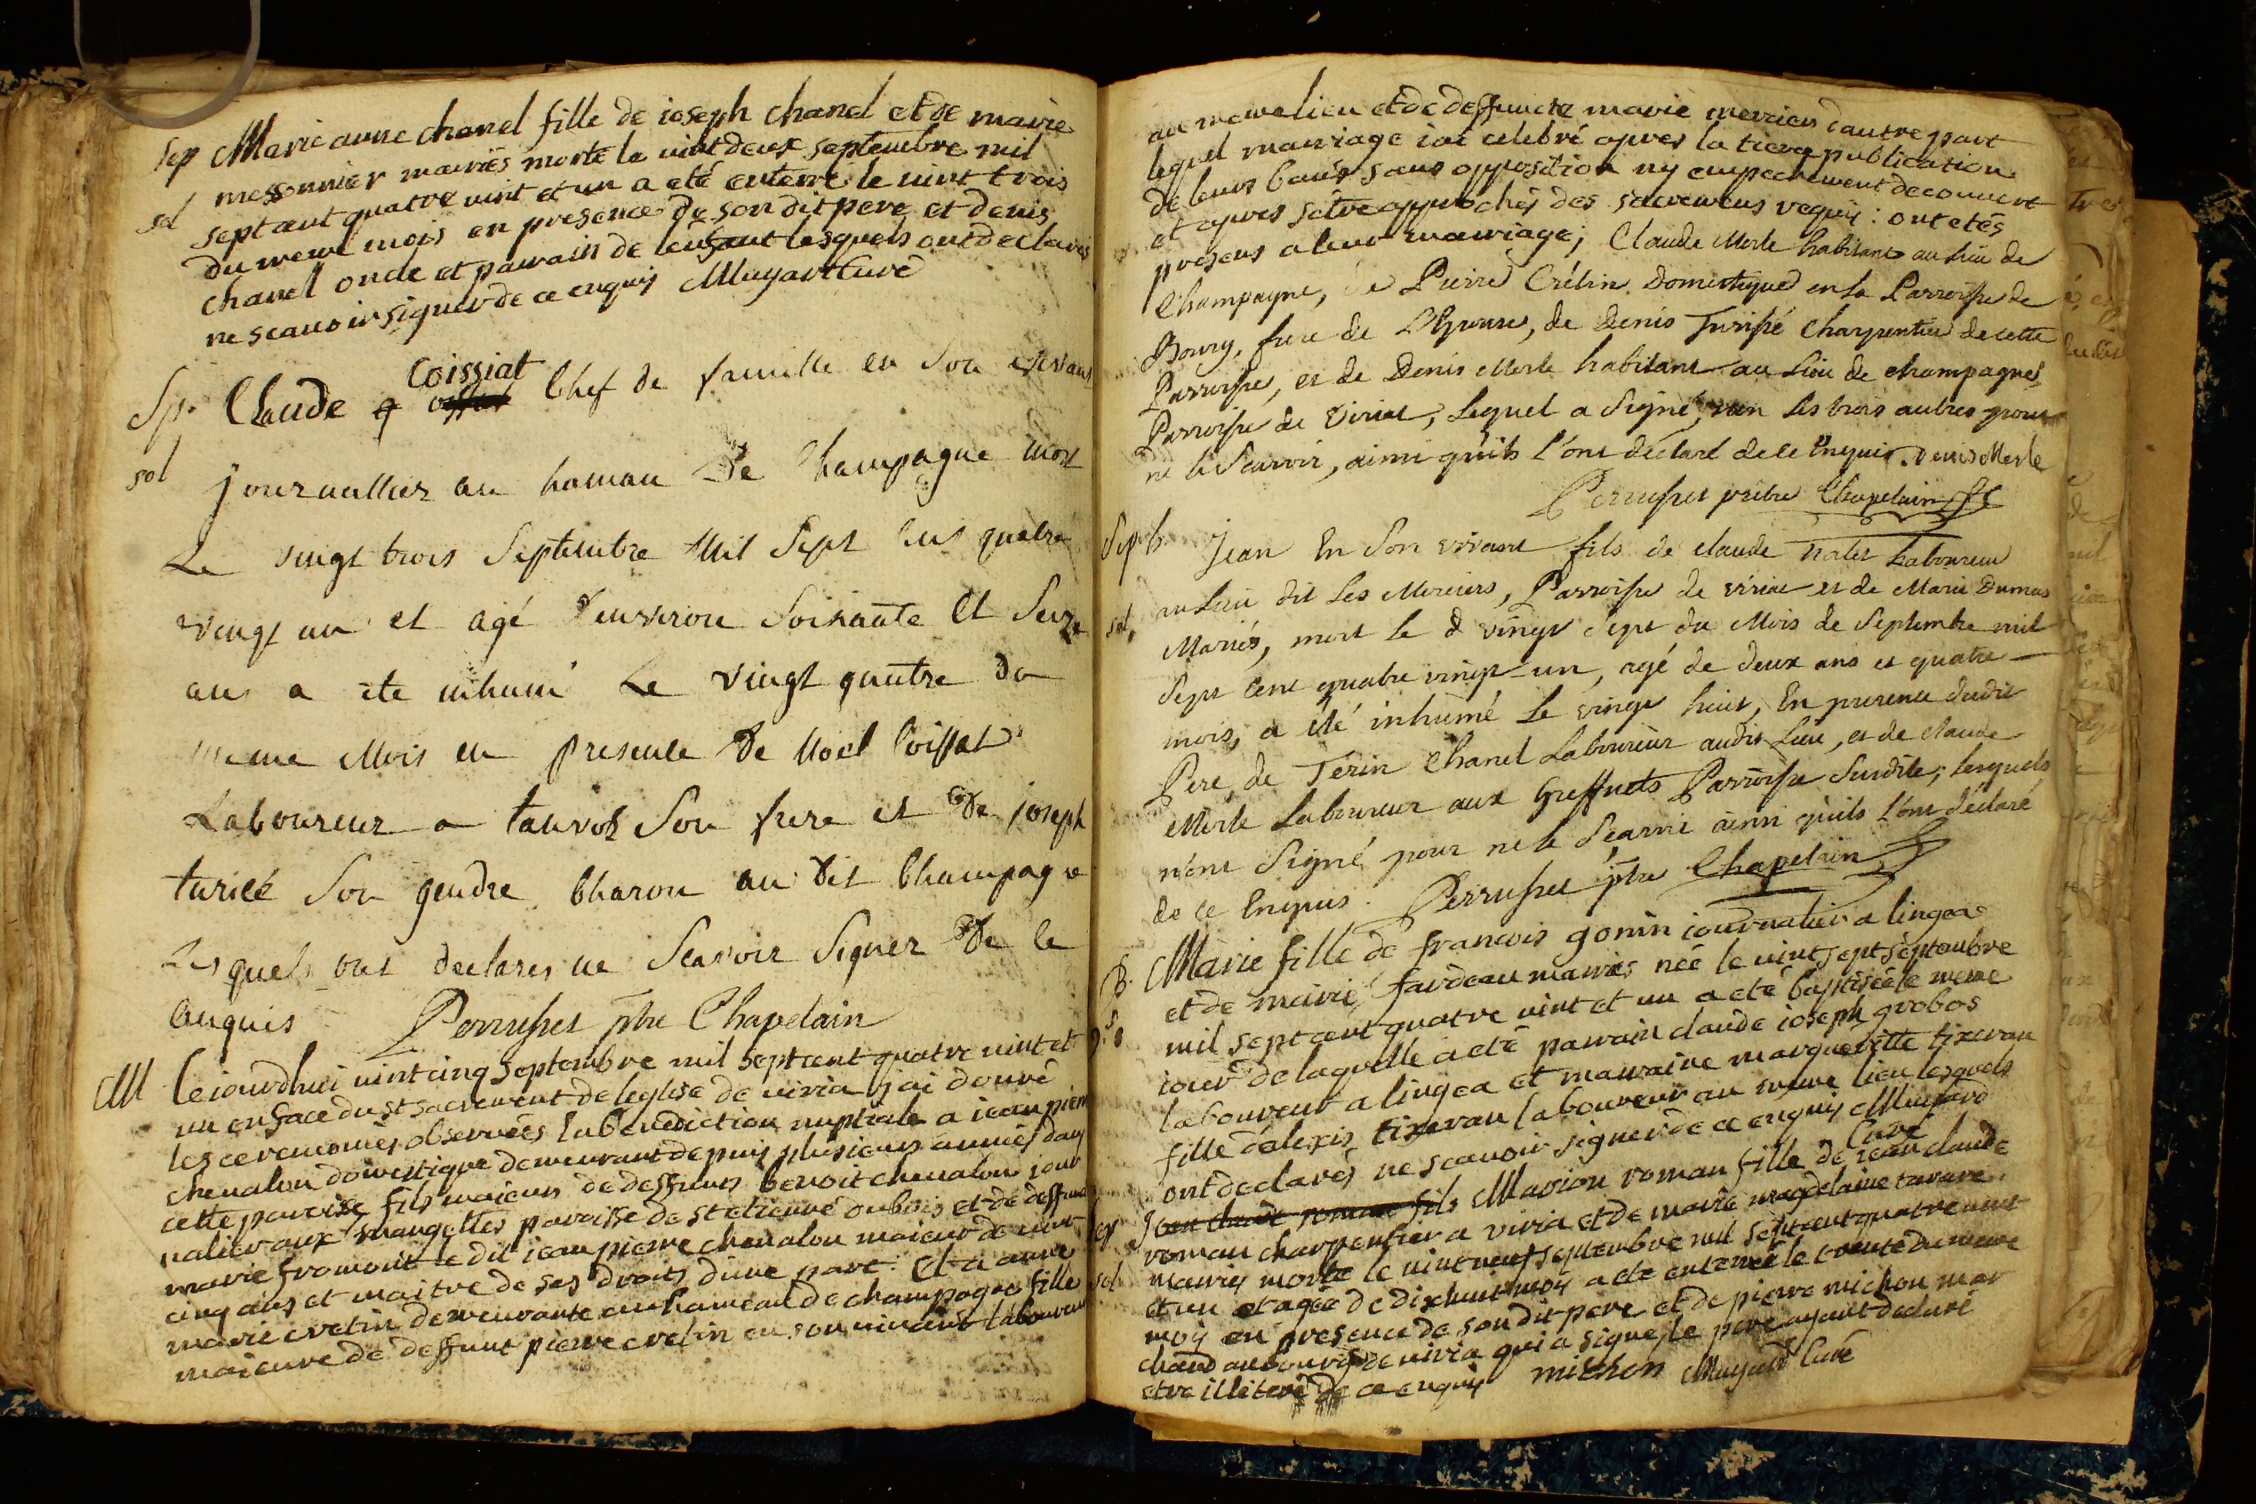 Sep Marie anne chanel fille de ioseph chanel et de marie
messonnier mariés morte le vint deux septembre mil
sol sept cent quatre vint et un a eté enterré le vint trois
du meme mois en presence de son dit pere et denis
chanel oncle et parrain de lenfant lesquels ont declarés
ne scauoir signer de ce enquis Muyart Curé
Sp. Claude Coissiat Chef de famille en Son vivant
sol journallier au hamau de Champagne mort
Le vingt trois Septembre Mil Sept Cens quatre
vingt un et agé d'environ Soixante Et Seize
ans a ete inhumé Le vingt quatre du
meme Mois en presence de Noel Coissat
Laboureur a Son frere et de joseph
turicé Son gendre Charon au dit Champagne
Lesquels ont declares ne Scavoir Signer de Ce
Enquis Perruset ptre Chapelain
M Ce iourdhui vint cinq septembre mil sept cent quatre vint et
un en face du st sacrement de leglise de viria j'ai donné
les ceremonies observées la benediction nuptiale a iean pierre
chenalon domestique demeurant depuis plusieurs années dans
cette paroisse fils maieur de deffunt benoit chenalon jour
nalier aux mangettes paroisse de st etienne dubois et de deffunte
marie fromont le dit iean pierre chenalon maieur de vint
cinq ans et maitre de ses droits dune part. Et a anne
marie cretin demeurante au hameau de champagne fille
maieure de deffunt pierre cretin en son vivant laboureur
au meme lieu et de deffuncte marie mercier d'autre part
lequel mariage iai celebré apres la tierce publication
de leurs bans sans opposition ny empechement decouvert
et apres setre approchés des sacremens requis : ont etés
presens a leur mariage; Claude Merle habitant au lieu de
Champagne, de Pierre Crétin Domestique en la Parroisse de
Bourg, frere de L'Epouse, de Denis Turissé Charpentier de cette
Parroisse, et de Denis Merle habitant au Lieu de champagne
Parroisse de Viriat, Lequel a Signé, non les trois autres pour
ne le Scavoir, ainsi qu'ils l'ont déclaré de ce Enquis. Denis Merle
Perruset prêtre Chapelain
Sep. Jean En Son vivant fils de claude Laboureur
au Lieu dit Les Merciers, Parroisse de viriat et de Marie Dumas
sol. Mariés, mort le vingt Sept du Mois de Septembre mil
Sept Cent quatre vingt-un, agé de deux ans et quatre
mois, a été inhumé Le vingt huit, En presence dudit
Pere, de Terin Chanel Laboureur audit Lieu, et de claude
Merle Laboureur aux Greffnets Parroisse Susdite; lesquels
n'ont Signé pour ne le Scavoir ainsi qu'ils l'ont déclaré
de ce Enquis. Perruset ptre Chapelain
B. Marie fille de francois gonin iournalier a lingea
et de marie fardeau mariés née le vint sept septembre
mil sept cent quatre vint et un a eté baptisée le meme
iour de laquelle a eté parrain claude ioseph grobos
laboureur a lingea et marraine margueritte tixeran
fille dalexis tixeran laboureur au meme lieu lesquels
ont declarés ne scauoir signer de ce enquis Muyard
Curé
sep Jean claude roman fils Marion roman fille de iean claude
roman charpentier a viria et de marie magdelaine tavare
sol mariés morte le vint neuf septembre mil sept cent quatre vint
et un et agée de dix huit mois a eté enterré le trente du meme
mois en presence de son dit pere et de pierre michon mar
chand au bourg de viria qui a signe, le pere ayant declaré
etre illiteré de ce enquis michon Muyard Curé